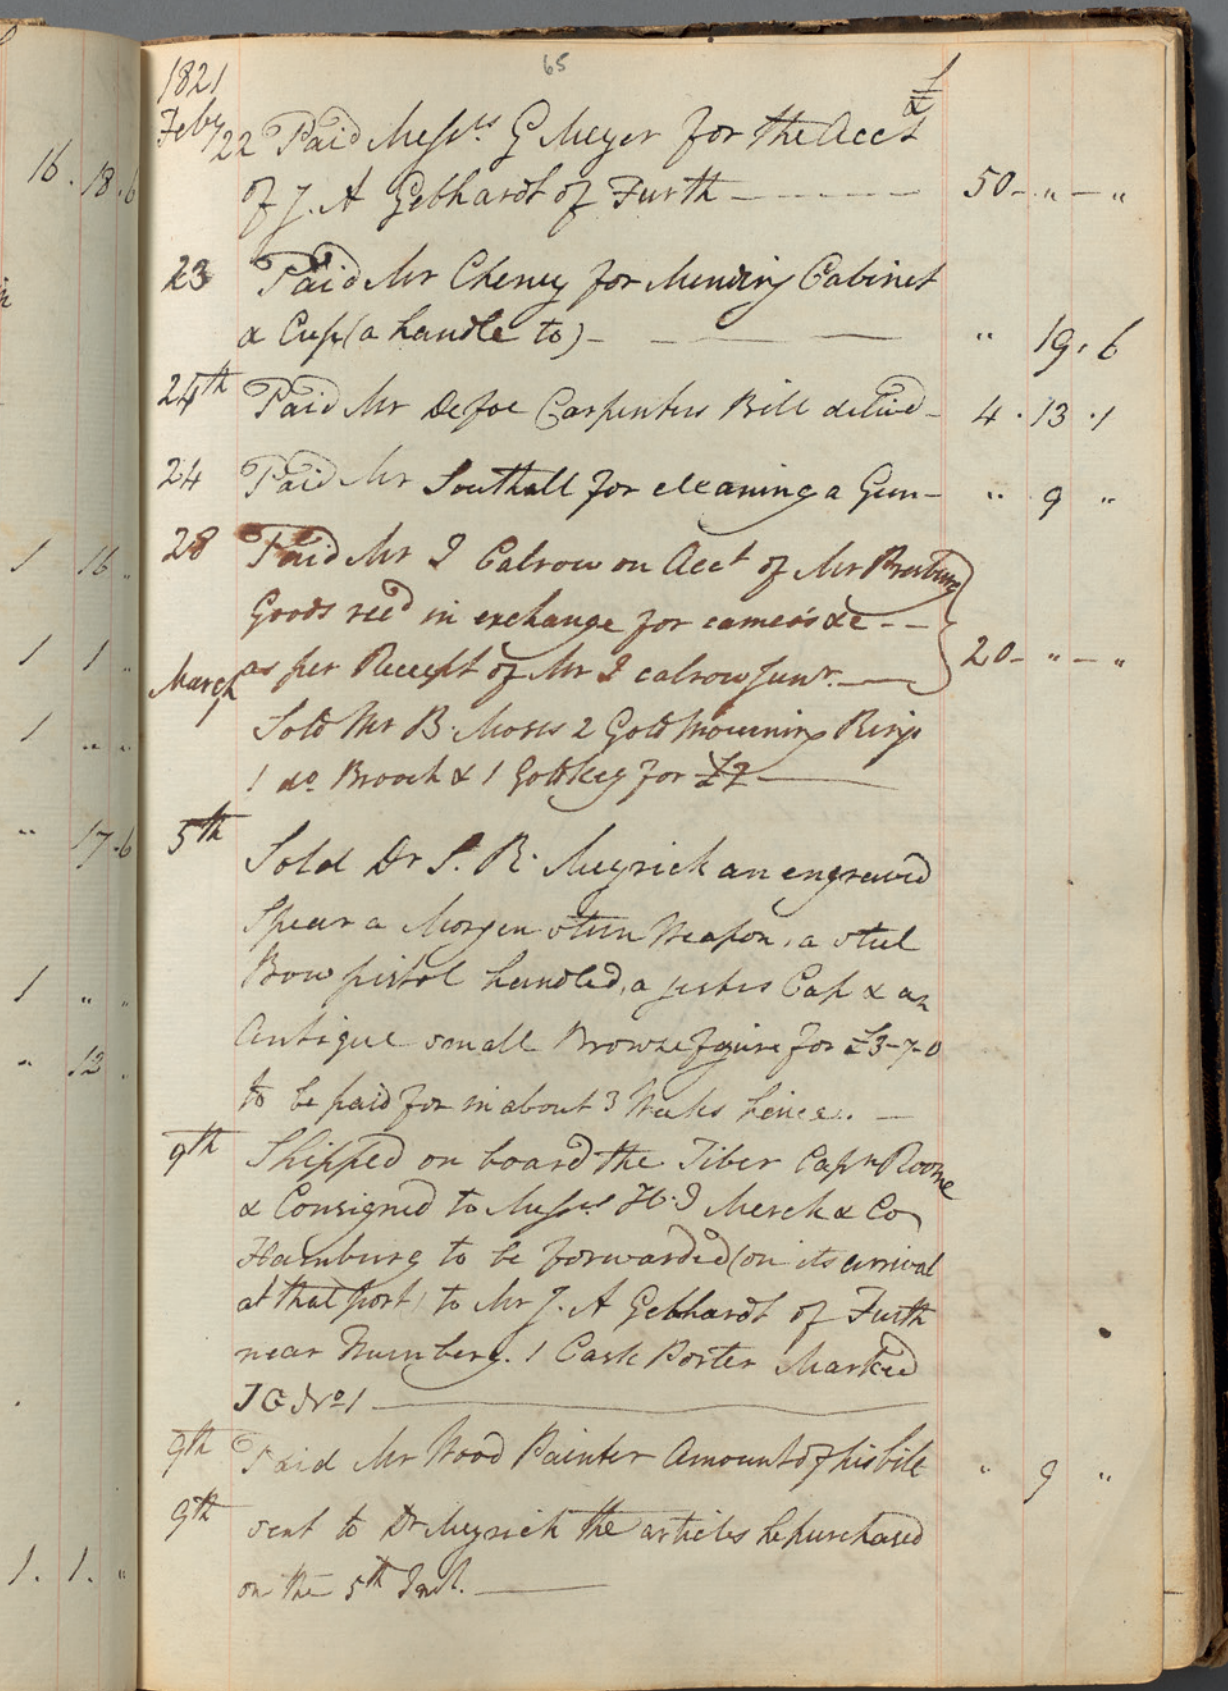 65
1821
£
Feby 22 Paid Messrs G Meyer for the Acct
of J. A Gebhardt of Furth - - - - - 50 - " - "
23 Paid Mr Cheney for Mending Cabinet
& Cup (a handle to) - - — — " 19 . 6
24th Paid Mr Defoe Carpenters Bill delivd - 4 . 13 . 1
24 Paid Mr Southall for cleaning a Gun - " 9 "
28 Paid Mr I Calrow on Acct of Mr
Goods recd in exchange for cameos &c - -
as per Receipt of Mr I calrow Junr. — 20 - " - "
March 1
Sold Mr B. Moses 2 Gold Mourning Rings
1 do. Brooch & 1 Gold key for £2 —
5th Sold Dr S. R. Meyrick an engraved
Spear a Morgen stern Weapon, a steel
Bow pistol handled, a jesters Cap & an
Antique small Bronze figure for £3-7-0
to be paid for in about 3 Weeks hence. . —
9th Shipped on board the Tiber Capn Roome
& Consigned to Messrs H. I Merck & Co
Hamburg to be forwarded (on its arrival
at that port) to Mr J. A Gebhardt of Furth
near Nurnberg. 1 Cask Porter Marked
JG No 1 —
9th Paid Mr Wood Painter Amount of his bill " 9 "
9th sent to Dr Meyrick the articles he purchased
on the 5th Inst. —
16 . 18 . 6
1 16 "
1 1 "
1 " "
" 17 . 6
1 " "
" 12 .
1 . 1 . "